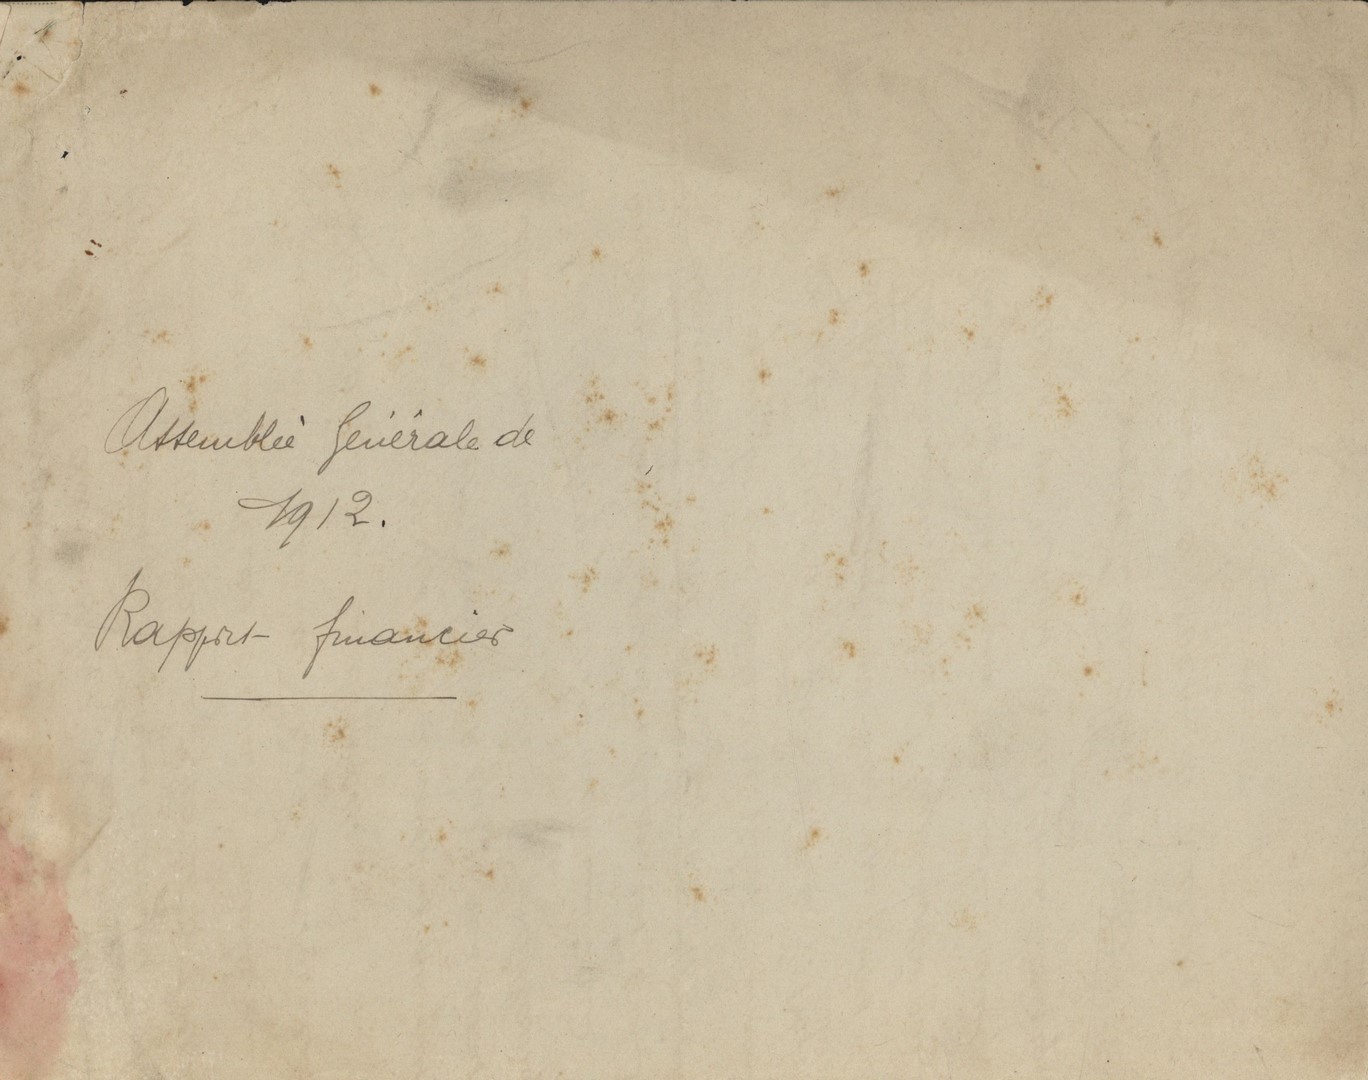 Assemblée Générale de
1912.
Rapport financier